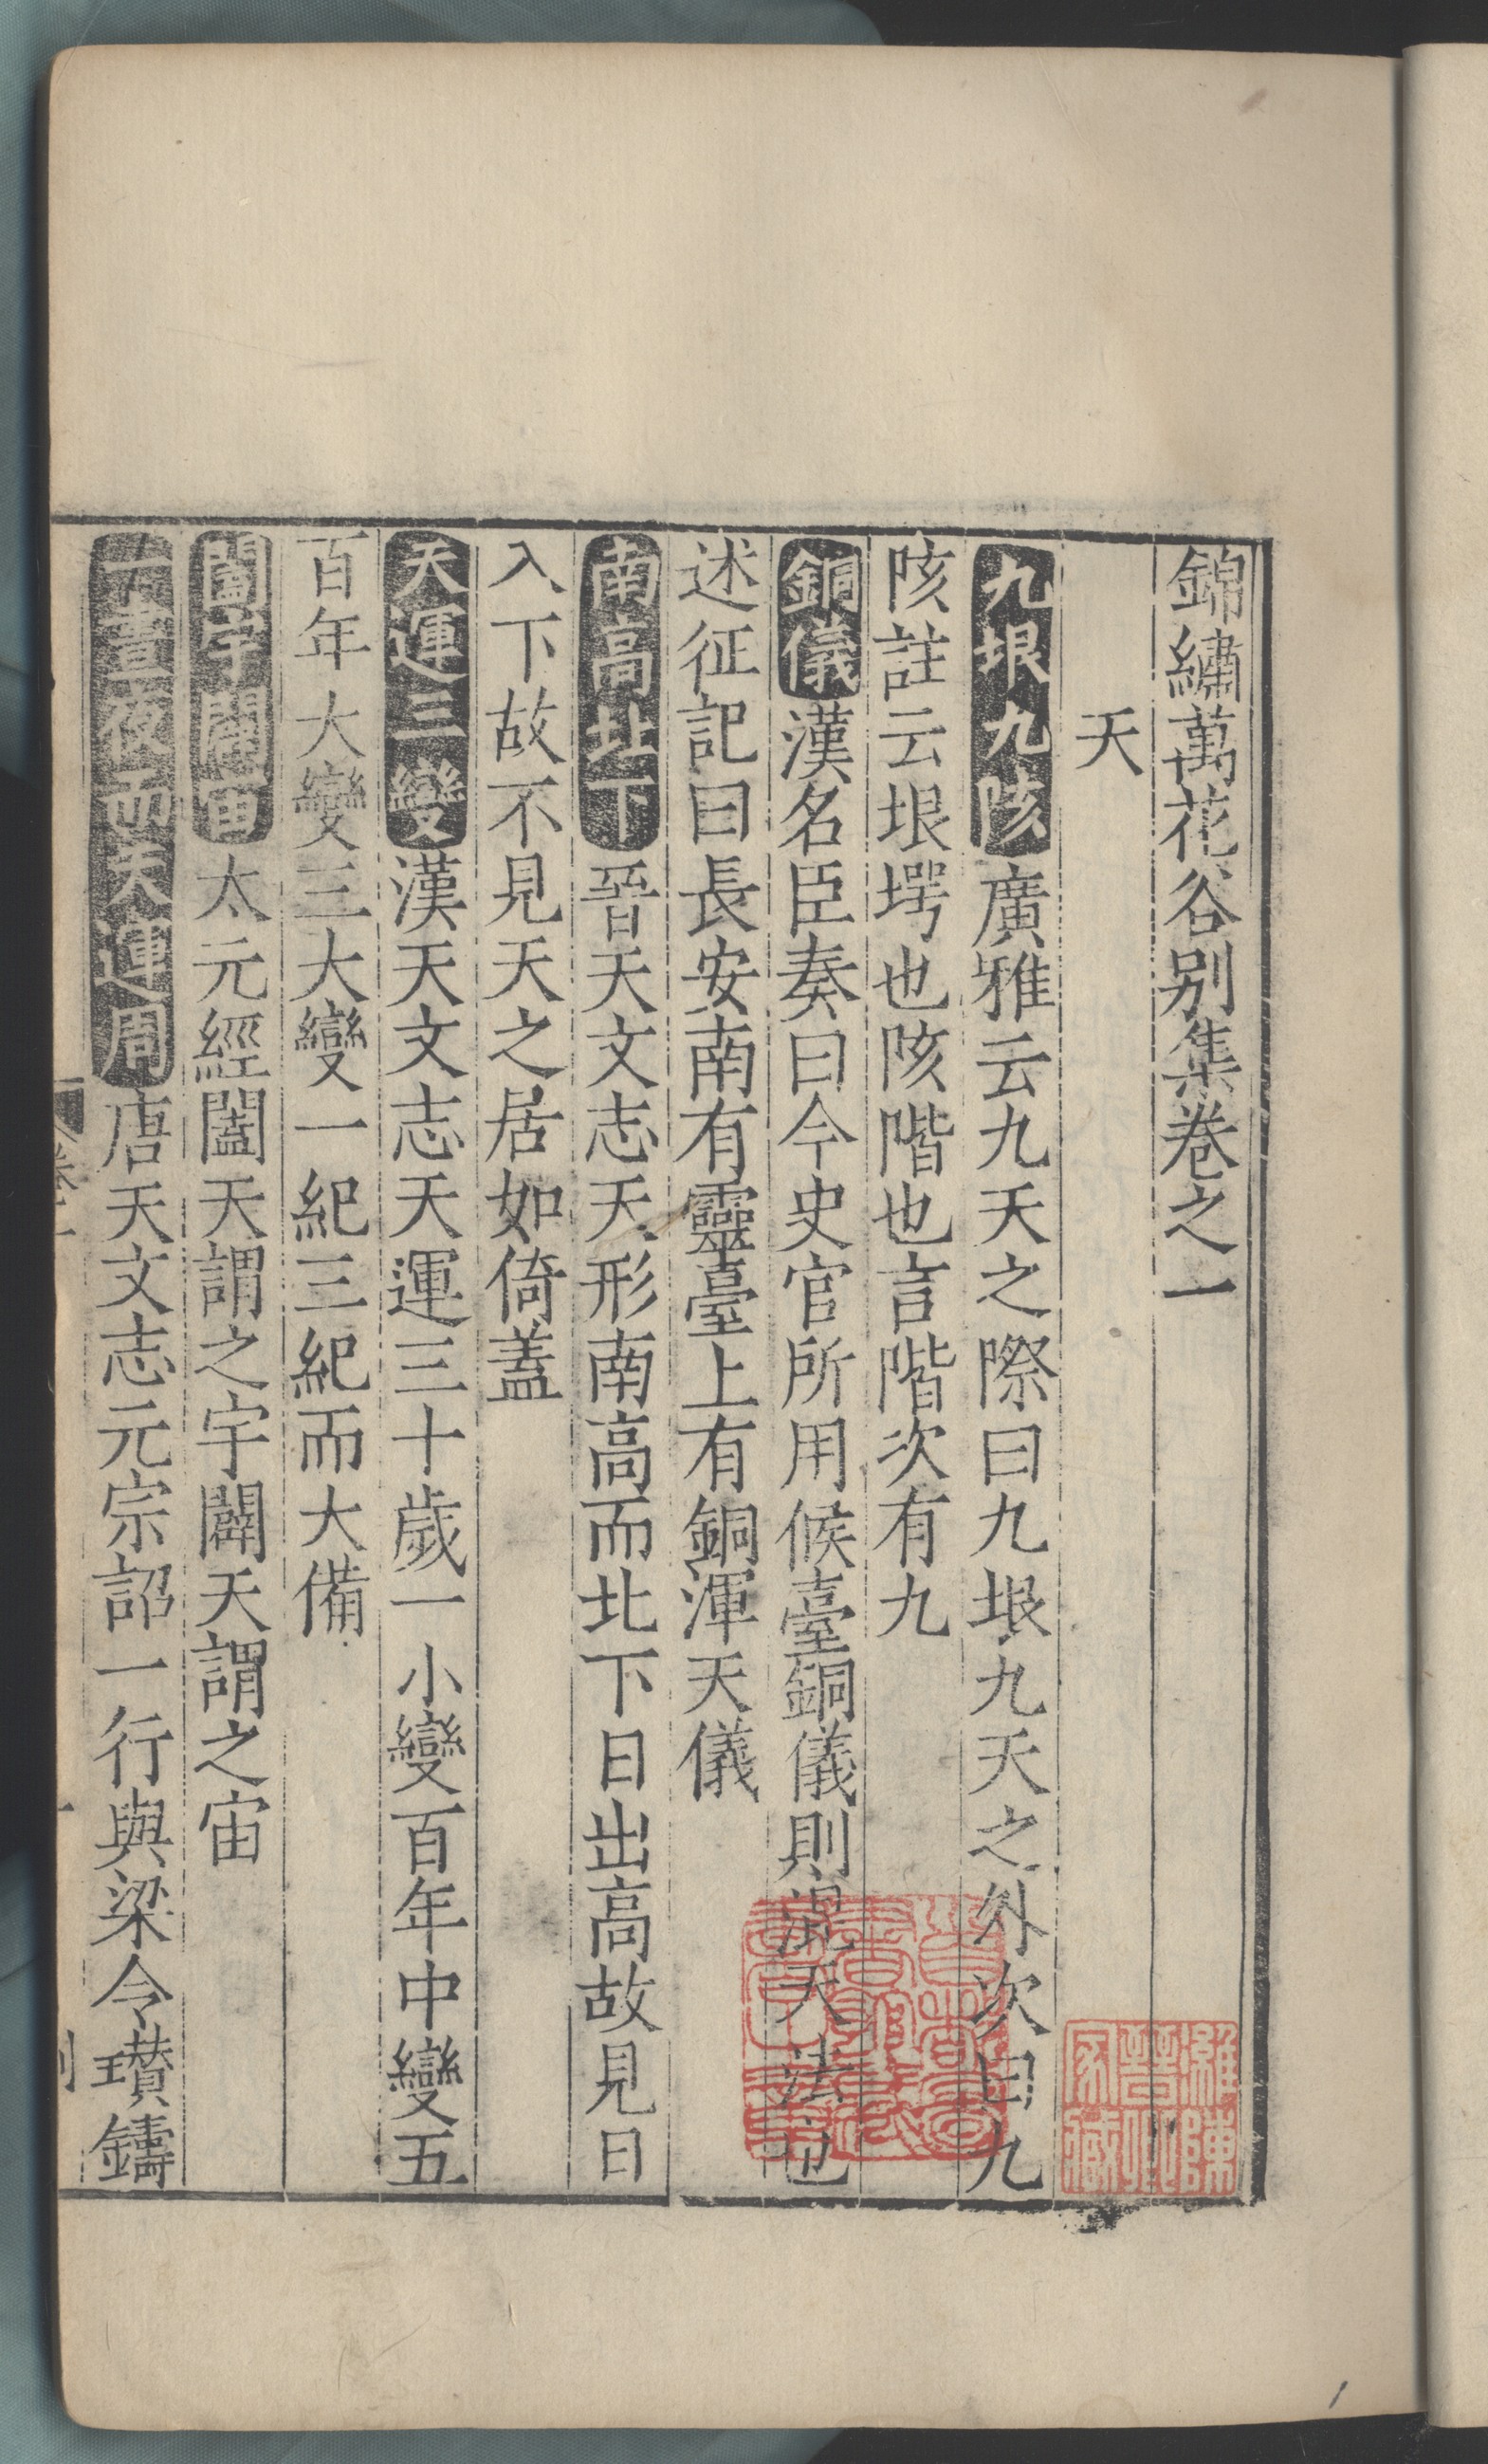 錦繡萬花谷别集卷之一
天
九垠九陔廣雅云九天之際曰九垠九天之外次曰九
陔註云垠堮也陔階也言階次有九
銅儀漢名臣奏曰今史官所用候臺銅儀則渾天法也
述征記曰長安南有靈臺上有銅渾天儀
南高北下晉天文志天形南高而北下日出高故見日
入下故不見天之居如倚蓋
天運三變漢天文志天運三十歲一小變百年中變五
百年大變三大變一紀三紀而大備
闔宇闢宙太元經闔天謂之宇闢天謂之宙
一晝夜而天運周唐天文志元宗詔一行與梁令瓚鑄